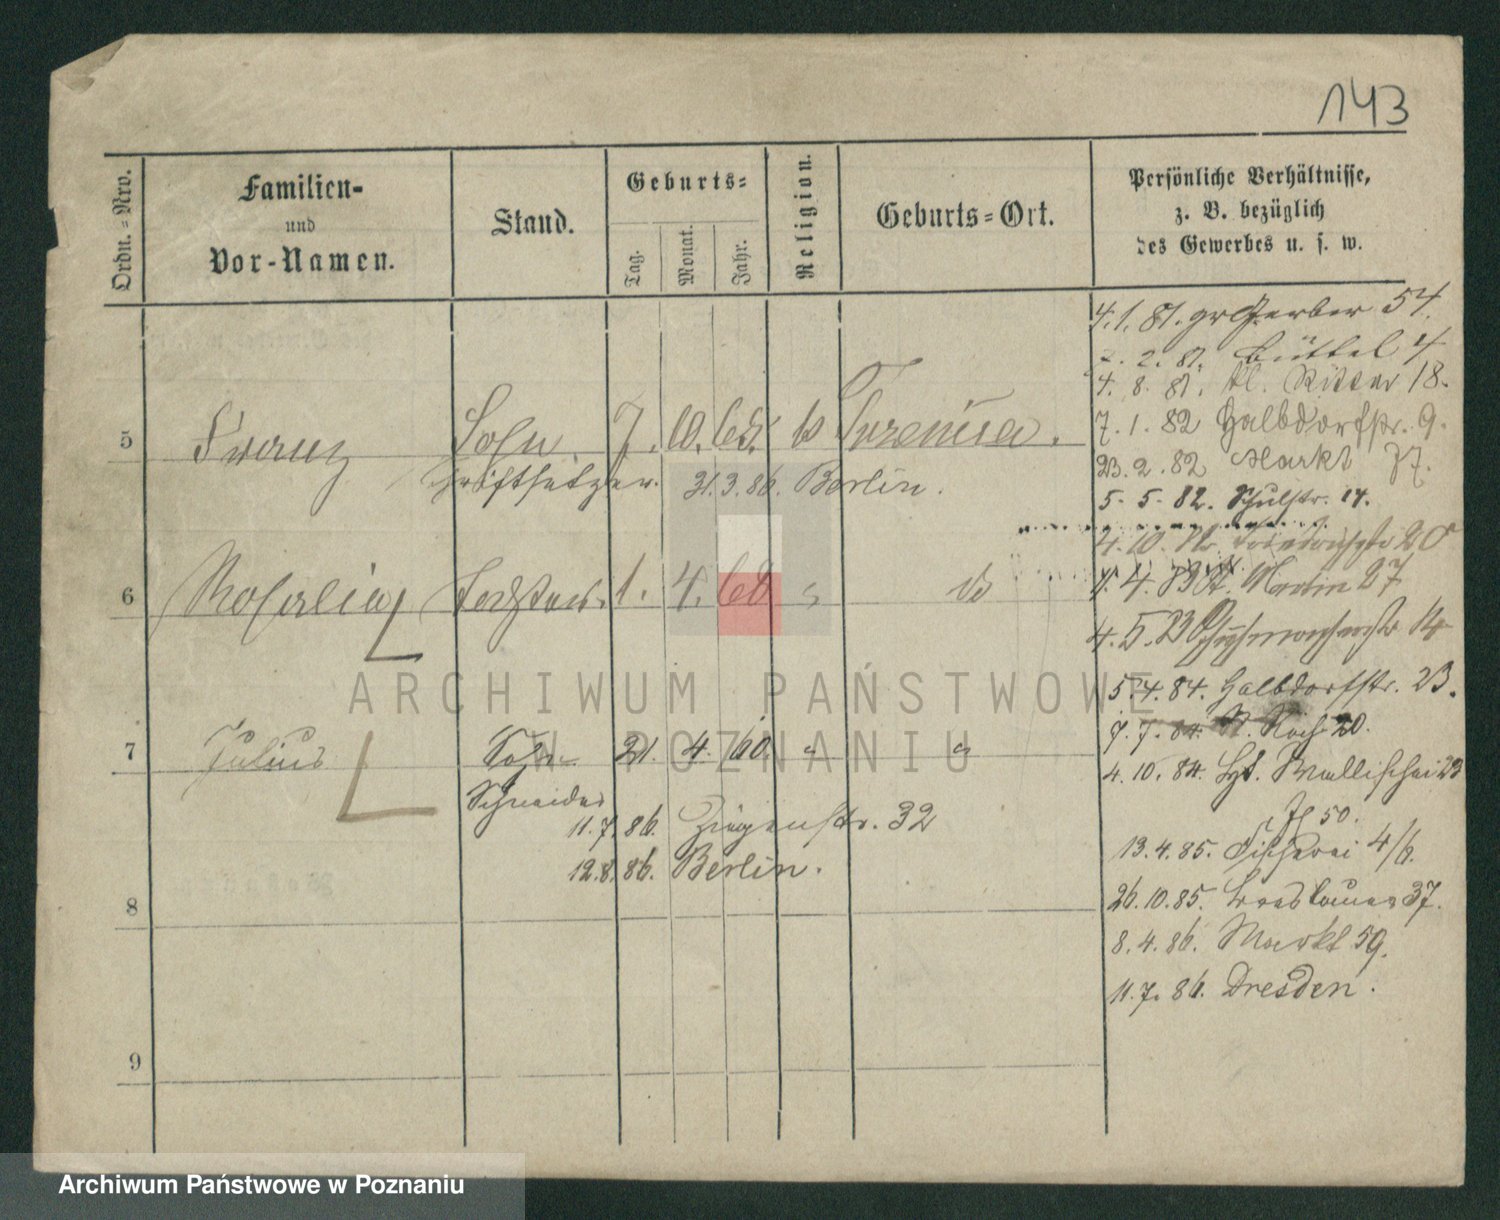 143
Ordn.-Nro.
Familien-
und
Vor-Namen.
Stand.
Geburts-
Tag.
Monat.
Jahr.
Religion.
Geburts-Ort.
Persönliche Verhältnisse,
z. B. bezüglich
des Gewerbes u. s. w.
4. 1. 81. gr Gerber 54.
2. 81. Büttel 4
4. 8. 81. kl. Ritter 18.
7. 1. 82 Halbdorfstr. 9.
23. 2. 82 Markt 37.
5. 5. 82. Schulstr. 14.
5 Franz Sohn 7. 10. do
Schriftsetzer. 31. 3. 86. Berlin.
4. 10. 20
4. 4. 83 St. Martin 27
6 Rosalia Tochter. 1. 4. 68 do
4. 5. 83 14
5. 4. 84. Halbdorfstr. 23.
7. 7. 84. St. Roch 20.
7 Julius Sohn 21. 4. 60. " "
4. 10. 84. Wallischei 23
Schneider
11. 7. 86. Ziegenstr. 32
50.
12. 8. 86. Berlin.
13. 4. 85. Fischerei 4/6.
8
26. 10. 85. Breslauer 37.
8. 4. 86. Markt 59.
11. 7. 86. Dresden.
9
ARCHIWUM PAŃSTWOWE
W POZNANIU
Archiwum Państwowe w Poznaniu